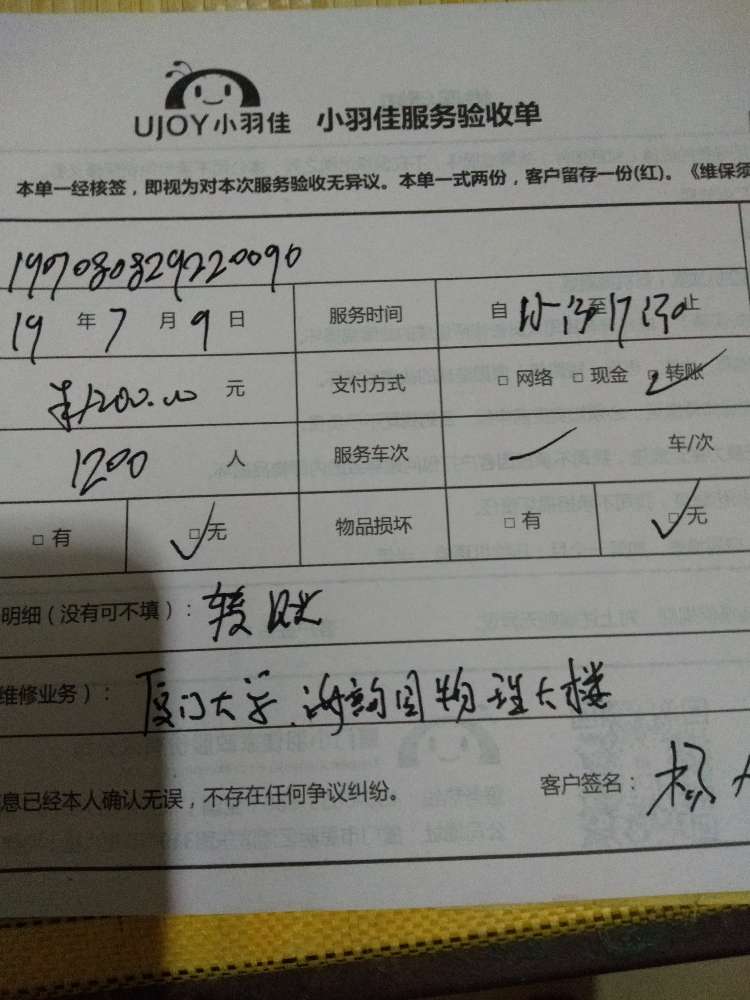 UJOY小羽佳 小羽佳服务验收单
本单一经核签，即视为对本次服务验收无异议。本单一式两份，客户留存一份(红)。《维保须
1907080829220090
19 年 7 月 9 日 服务时间 自 至17:30止
¥1200.00 元 支付方式 □ 网络 □ 现金 □ 转账
1200 人 服务车次 一 车/次
□ 有 □ 无 物品损坏 □ 有 □ 无
明细（没有可不填）： 转账
维修业务）： 厦门大学 物理大楼
息已经本人确认无误，不存在任何争议纠纷。 客户签名： 杨